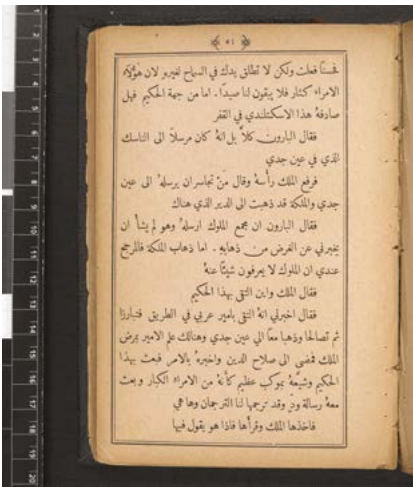 ﴿ ٥١ ﴾
فحسنًا فعلت ولكن لا تطلق يدك في السماح لغيره لان هؤلاء
الامراء كثار فلا يبقون لنا صيدًا. اما من جهة الحكيم فهل
صادفهُ هذا الاسكتلندي في القفر
فقال البارون كلاَّ بل انهُ كان مرسلاً الى الناسك
الذي في عين جدي
فرفع الملك رأسهُ وقال مَنْ تجاسر ان يرسلهُ الى عين
جدي والملكة قد ذهبت الى الدير الذي هناك
فقال البارون ان مجمع الملوك ارسلهُ وهو لم يشأ ان
يخبرني عن الغرض من ذهابهِ. اما ذهاب الملكة فالمرجح
عندي ان الملوك لا يعرفون شيئًا عنهُ
فقال الملك واين التقى بهذا الحكيم
فقال اخبرني انهُ التقى بامير عربي في الطريق فتبارزا
ثم تصالحا وذهبا معًا الى عين جدي وهنالك علم الامير بمرض
الملك فمضى الى صلاح الدين واخبرهُ بالامر فبعث بهذا
الحكيم وشيعهُ بموكب عظيم كأنهُ من الامراء الكبار وبعث
معهُ رسالة ودّ وقد ترجمها لنا الترجمان وها هي
فاخذها الملك وقرأها فاذا هو يقول فيها
1
2
3
4
5
6
7
8
9
10
11
12
13
14
15
16
17
18
19
20